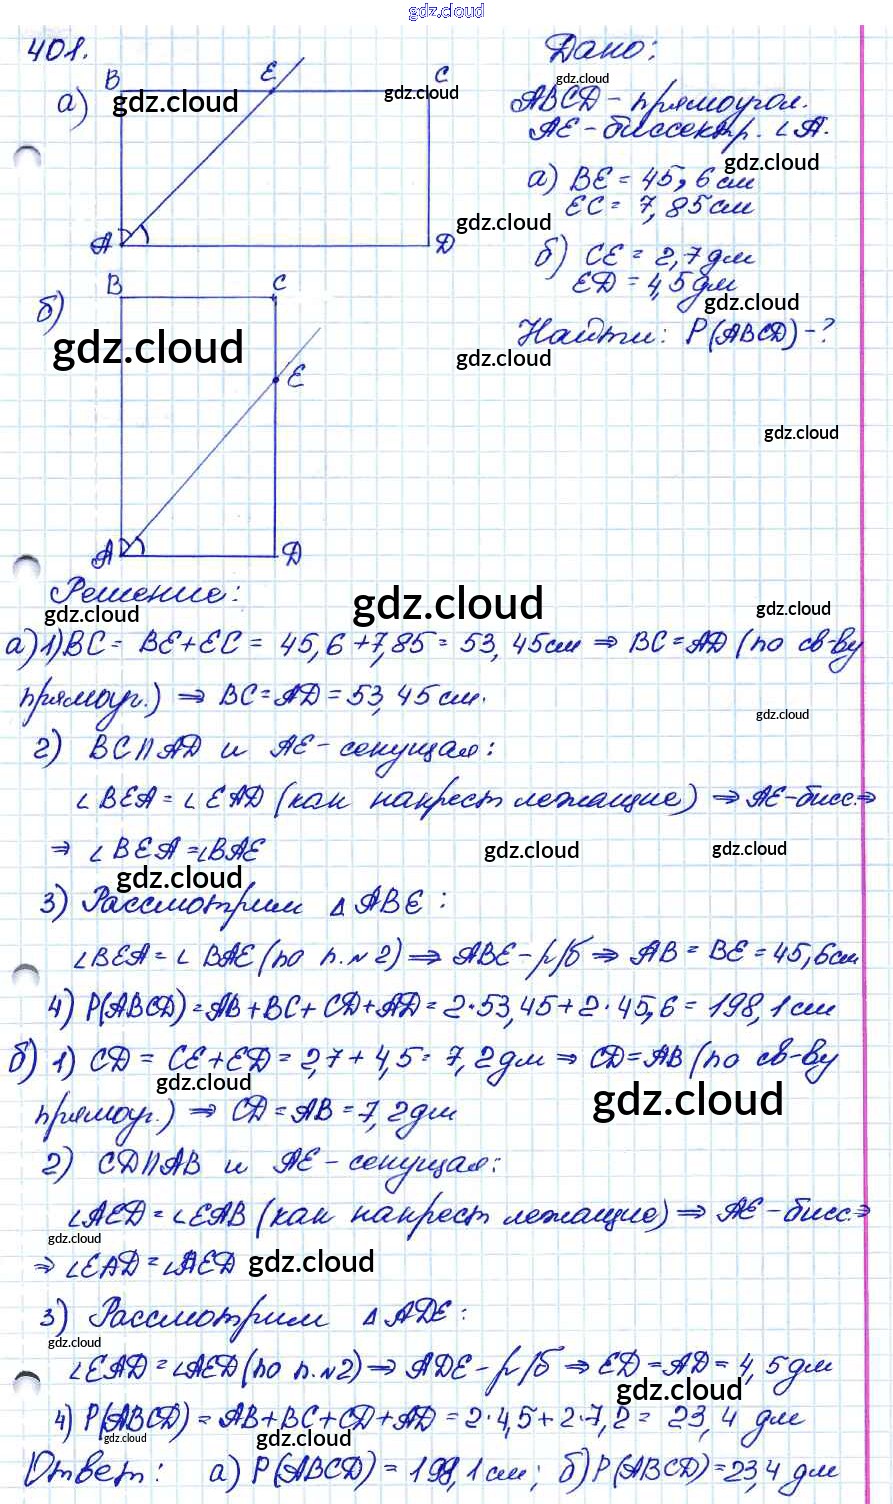 gdz.cloud
401.
B E C
а) gdz.cloud gdz.cloud
A D
Дано:
gdz.cloud
ABCD - прямоугол.
AE - биссектр. ∠A.
gdz.cloud
а) BE = 45,6 см
EC = 7,85 см
gdz.cloud
б) CE = 2,7 дм
ED = 4,5 дм
gdz.cloud
Найти: P(ABCD) - ?
gdz.cloud
gdz.cloud
B C
б)
gdz.cloud
E
A D
Решение:
gdz.cloud gdz.cloud gdz.cloud
а) 1) BC = BE + EC = 45,6 + 7,85 = 53,45 см ⇒ BC = AD (по св-ву
прямоуг.) ⇒ BC = AD = 53,45 см.
gdz.cloud
2) BC || AD и AE - секущая:
∠BEA = ∠EAD (как накрест лежащие) ⇒ AE - бисс. ⇒
⇒ ∠BEA = ∠BAE
gdz.cloud gdz.cloud
gdz.cloud
3) Рассмотрим △ABE:
∠BEA = ∠BAE (по п. № 2) ⇒ ABE - р/б ⇒ AB = BE = 45,6 см
4) P(ABCD) = AB + BC + CD + AD = 2·53,45 + 2·45,6 = 198,1 см
б) 1) CD = CE + ED = 2,7 + 4,5 = 7,2 дм ⇒ CD = AB (по св-ву
gdz.cloud gdz.cloud
прямоуг.) ⇒ CD = AB = 7,2 дм
2) CD || AB и AE - секущая:
∠AED = ∠EAB (как накрест лежащие) ⇒ AE - бисс. ⇒
gdz.cloud
⇒ ∠EAD = ∠AED gdz.cloud
3) Рассмотрим △ADE:
gdz.cloud
∠EAD = ∠AED (по п. №2) ⇒ ADE - р/б ⇒ ED = AD = 4,5 дм
gdz.cloud
4) P(ABCD) = AB + BC + CD + AD = 2·4,5 + 2·7,2 = 23,4 дм
gdz.cloud gdz.cloud
Ответ: а) P(ABCD) = 198,1 см; б) P(ABCD) = 23,4 дм